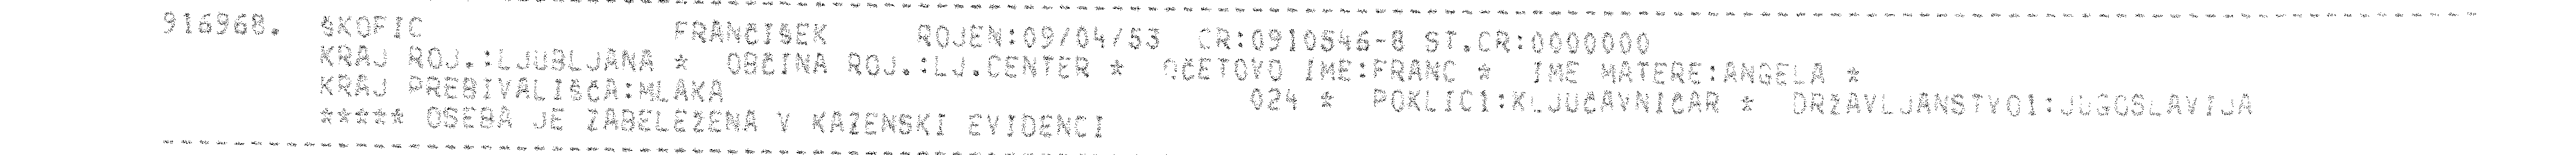 916968. ŠKOFIC FRANČIŠEK ROJEN:09/04/53 CR:0910546-8 ST.CR:0000000
KRAJ ROJ.:LJUBLJANA * OBČINA ROJ.:LJ.CENTER * OČETOVO IME:FRANC * IME MATERE:ANGELA *
KRAJ PREBIVALIŠČA:MLAKA 024 * POKLIC1:KLJUČAVNIČAR * DRŽAVLJANSTVO1:JUGOSLAVIJA
***** OSEBA JE ZABELEŽENA V KAZENSKI EVIDENCI